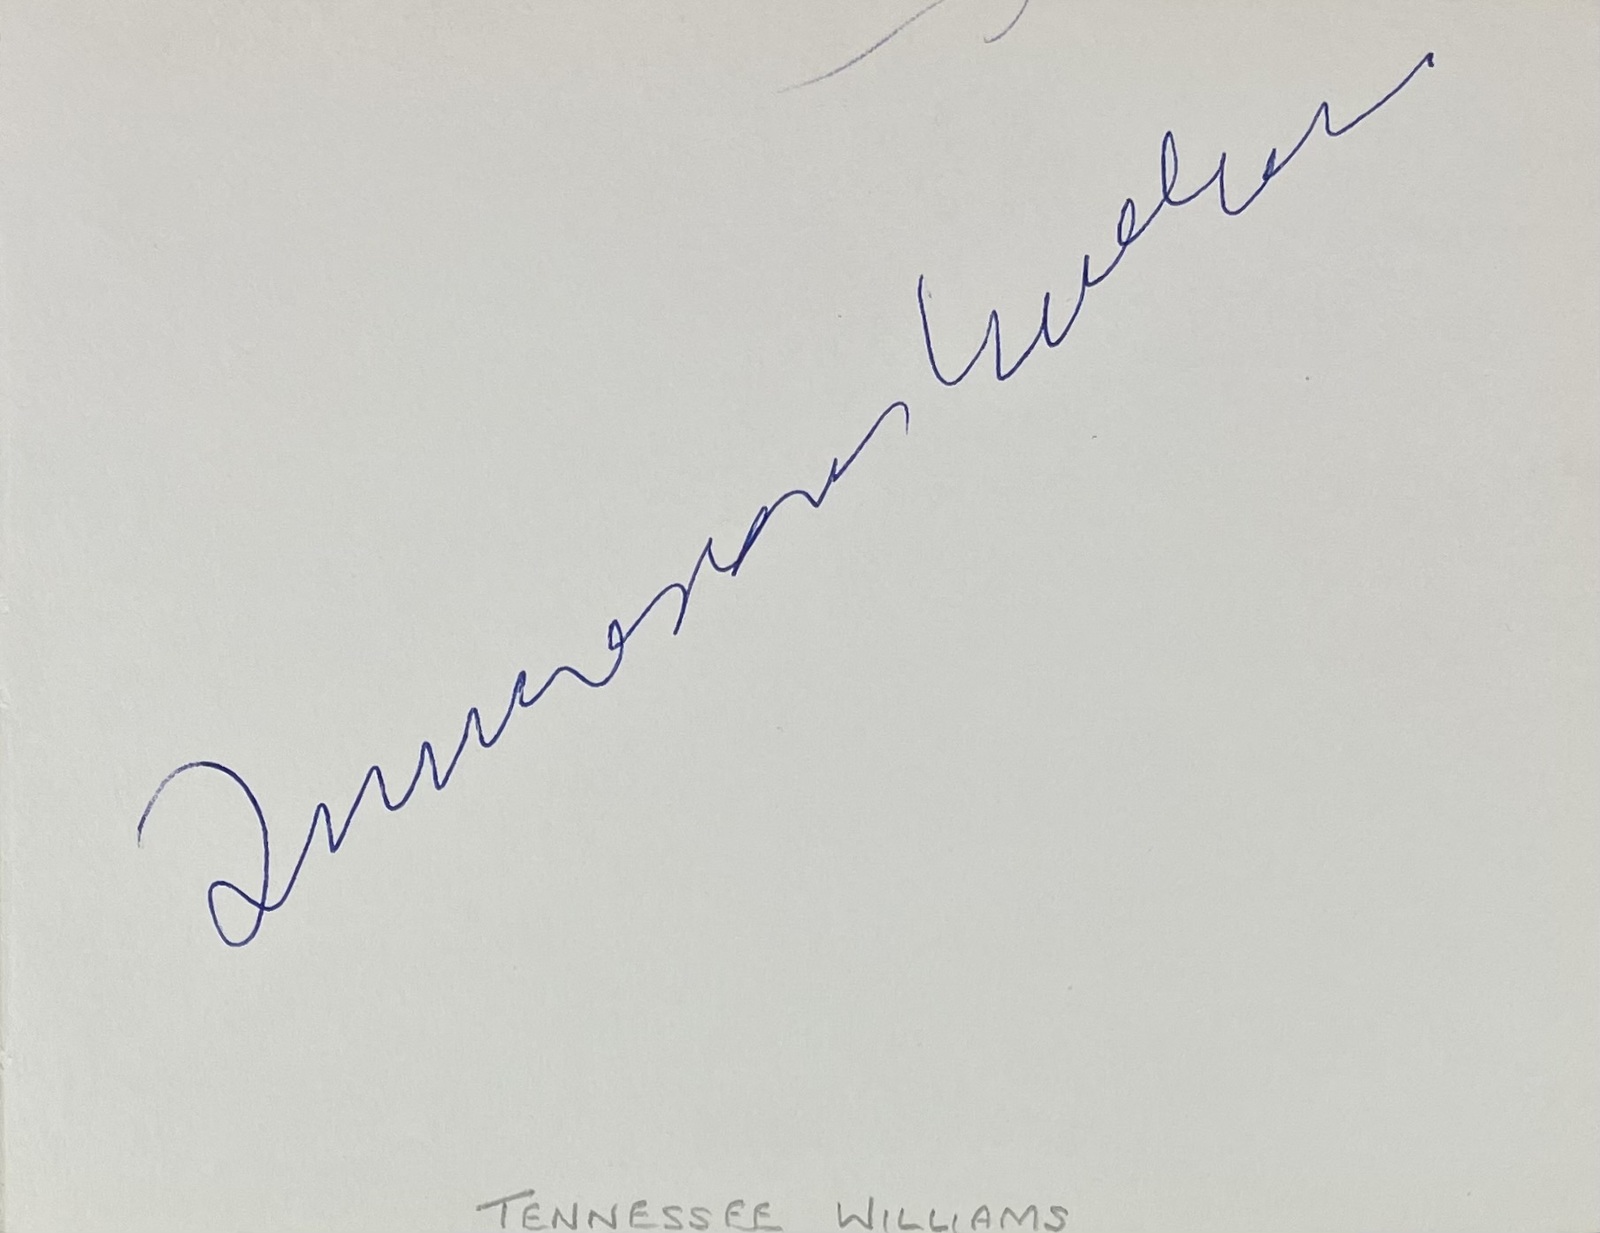 Tennessee Williams
TENNESSEE WILLIAMS